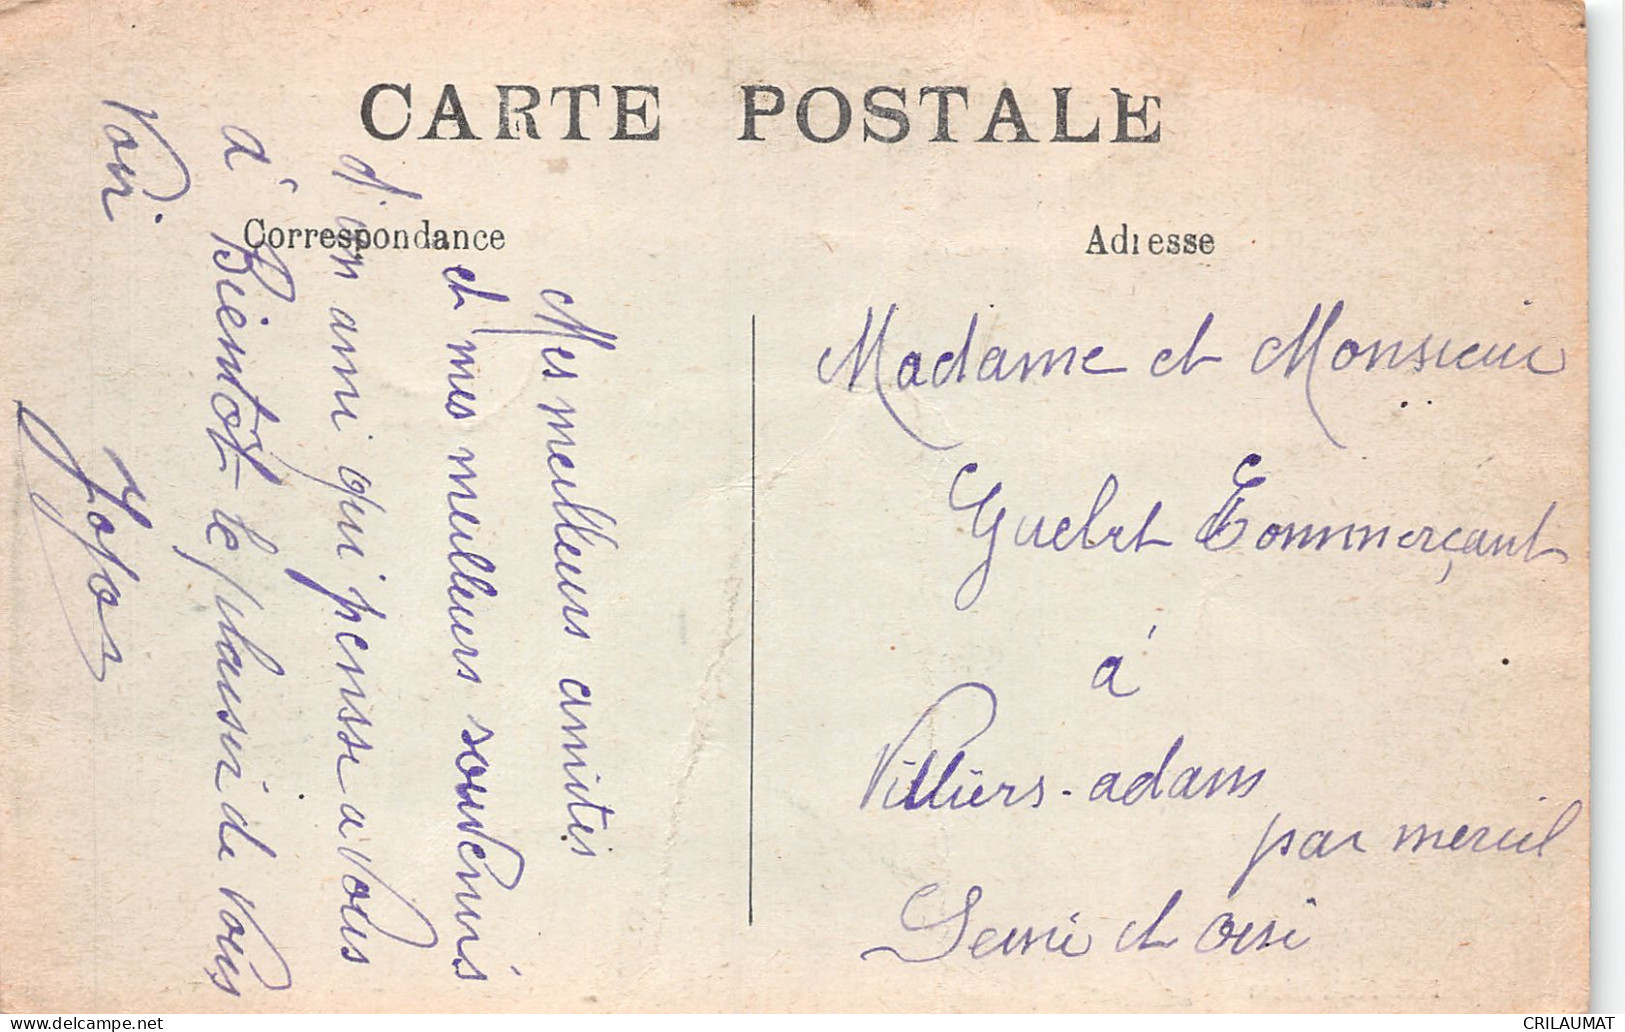 CARTE POSTALE
Correspondance
Adresse
Mes meilleurs amitis
et mes meilleurs souvenirs
d'un ami qui pense a vous
a' Bientot le plaisir de vous
Voir
Madame et Monsieur
Guebet Commerçant
à
Villiers-adam
par meriel
Seine et oise
CRILAUMAT